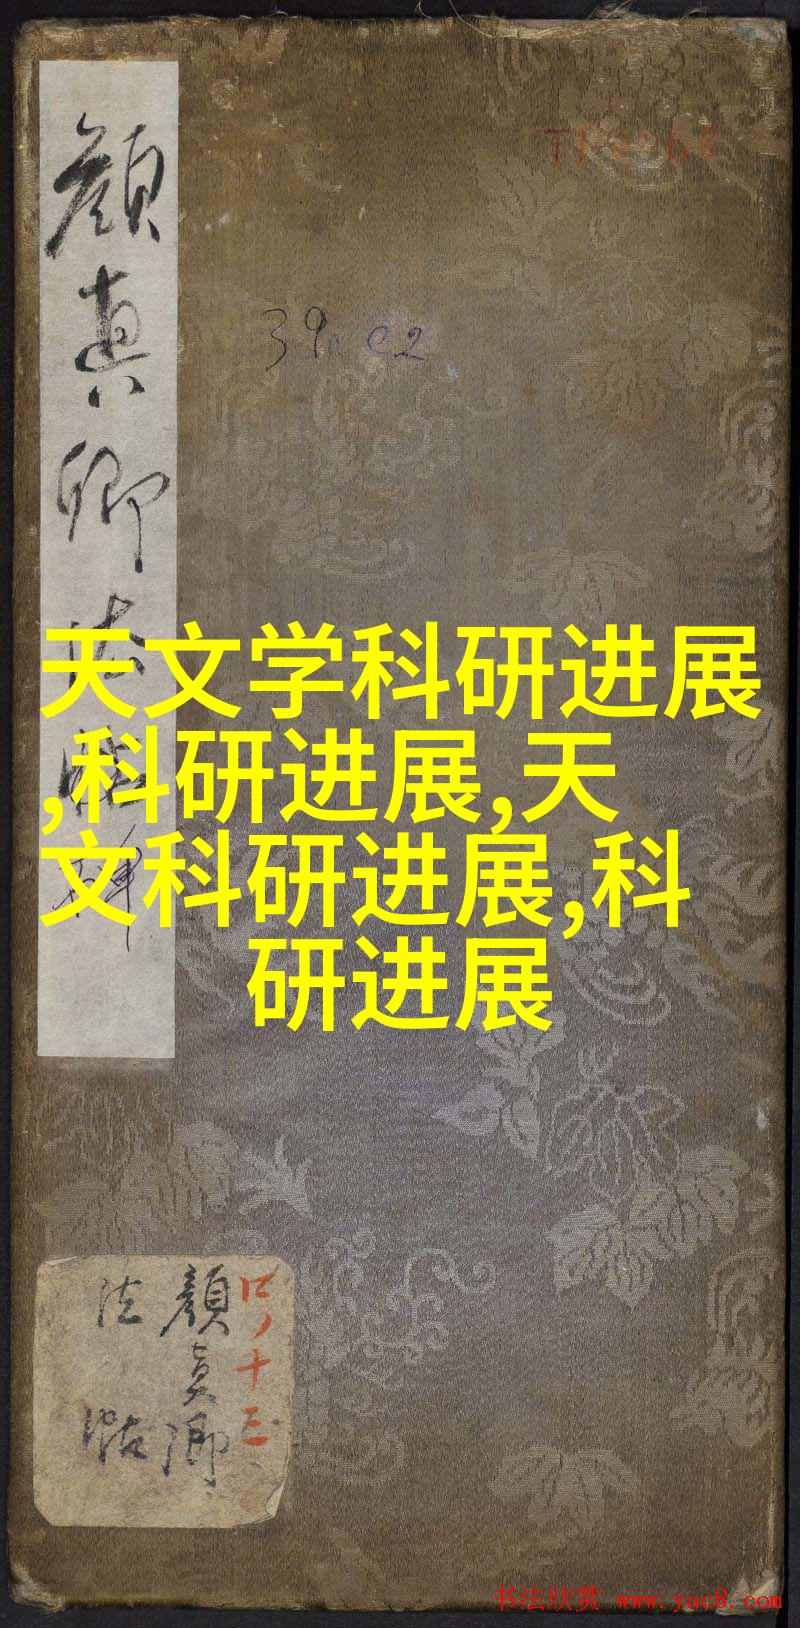 顔真卿法帖
TP2068
39.c2
天文学科研进展
,科研进展,天
文科研进展,科
研进展
口ノ十三
顔真卿
法帖
书法欣赏 www.yac8.com